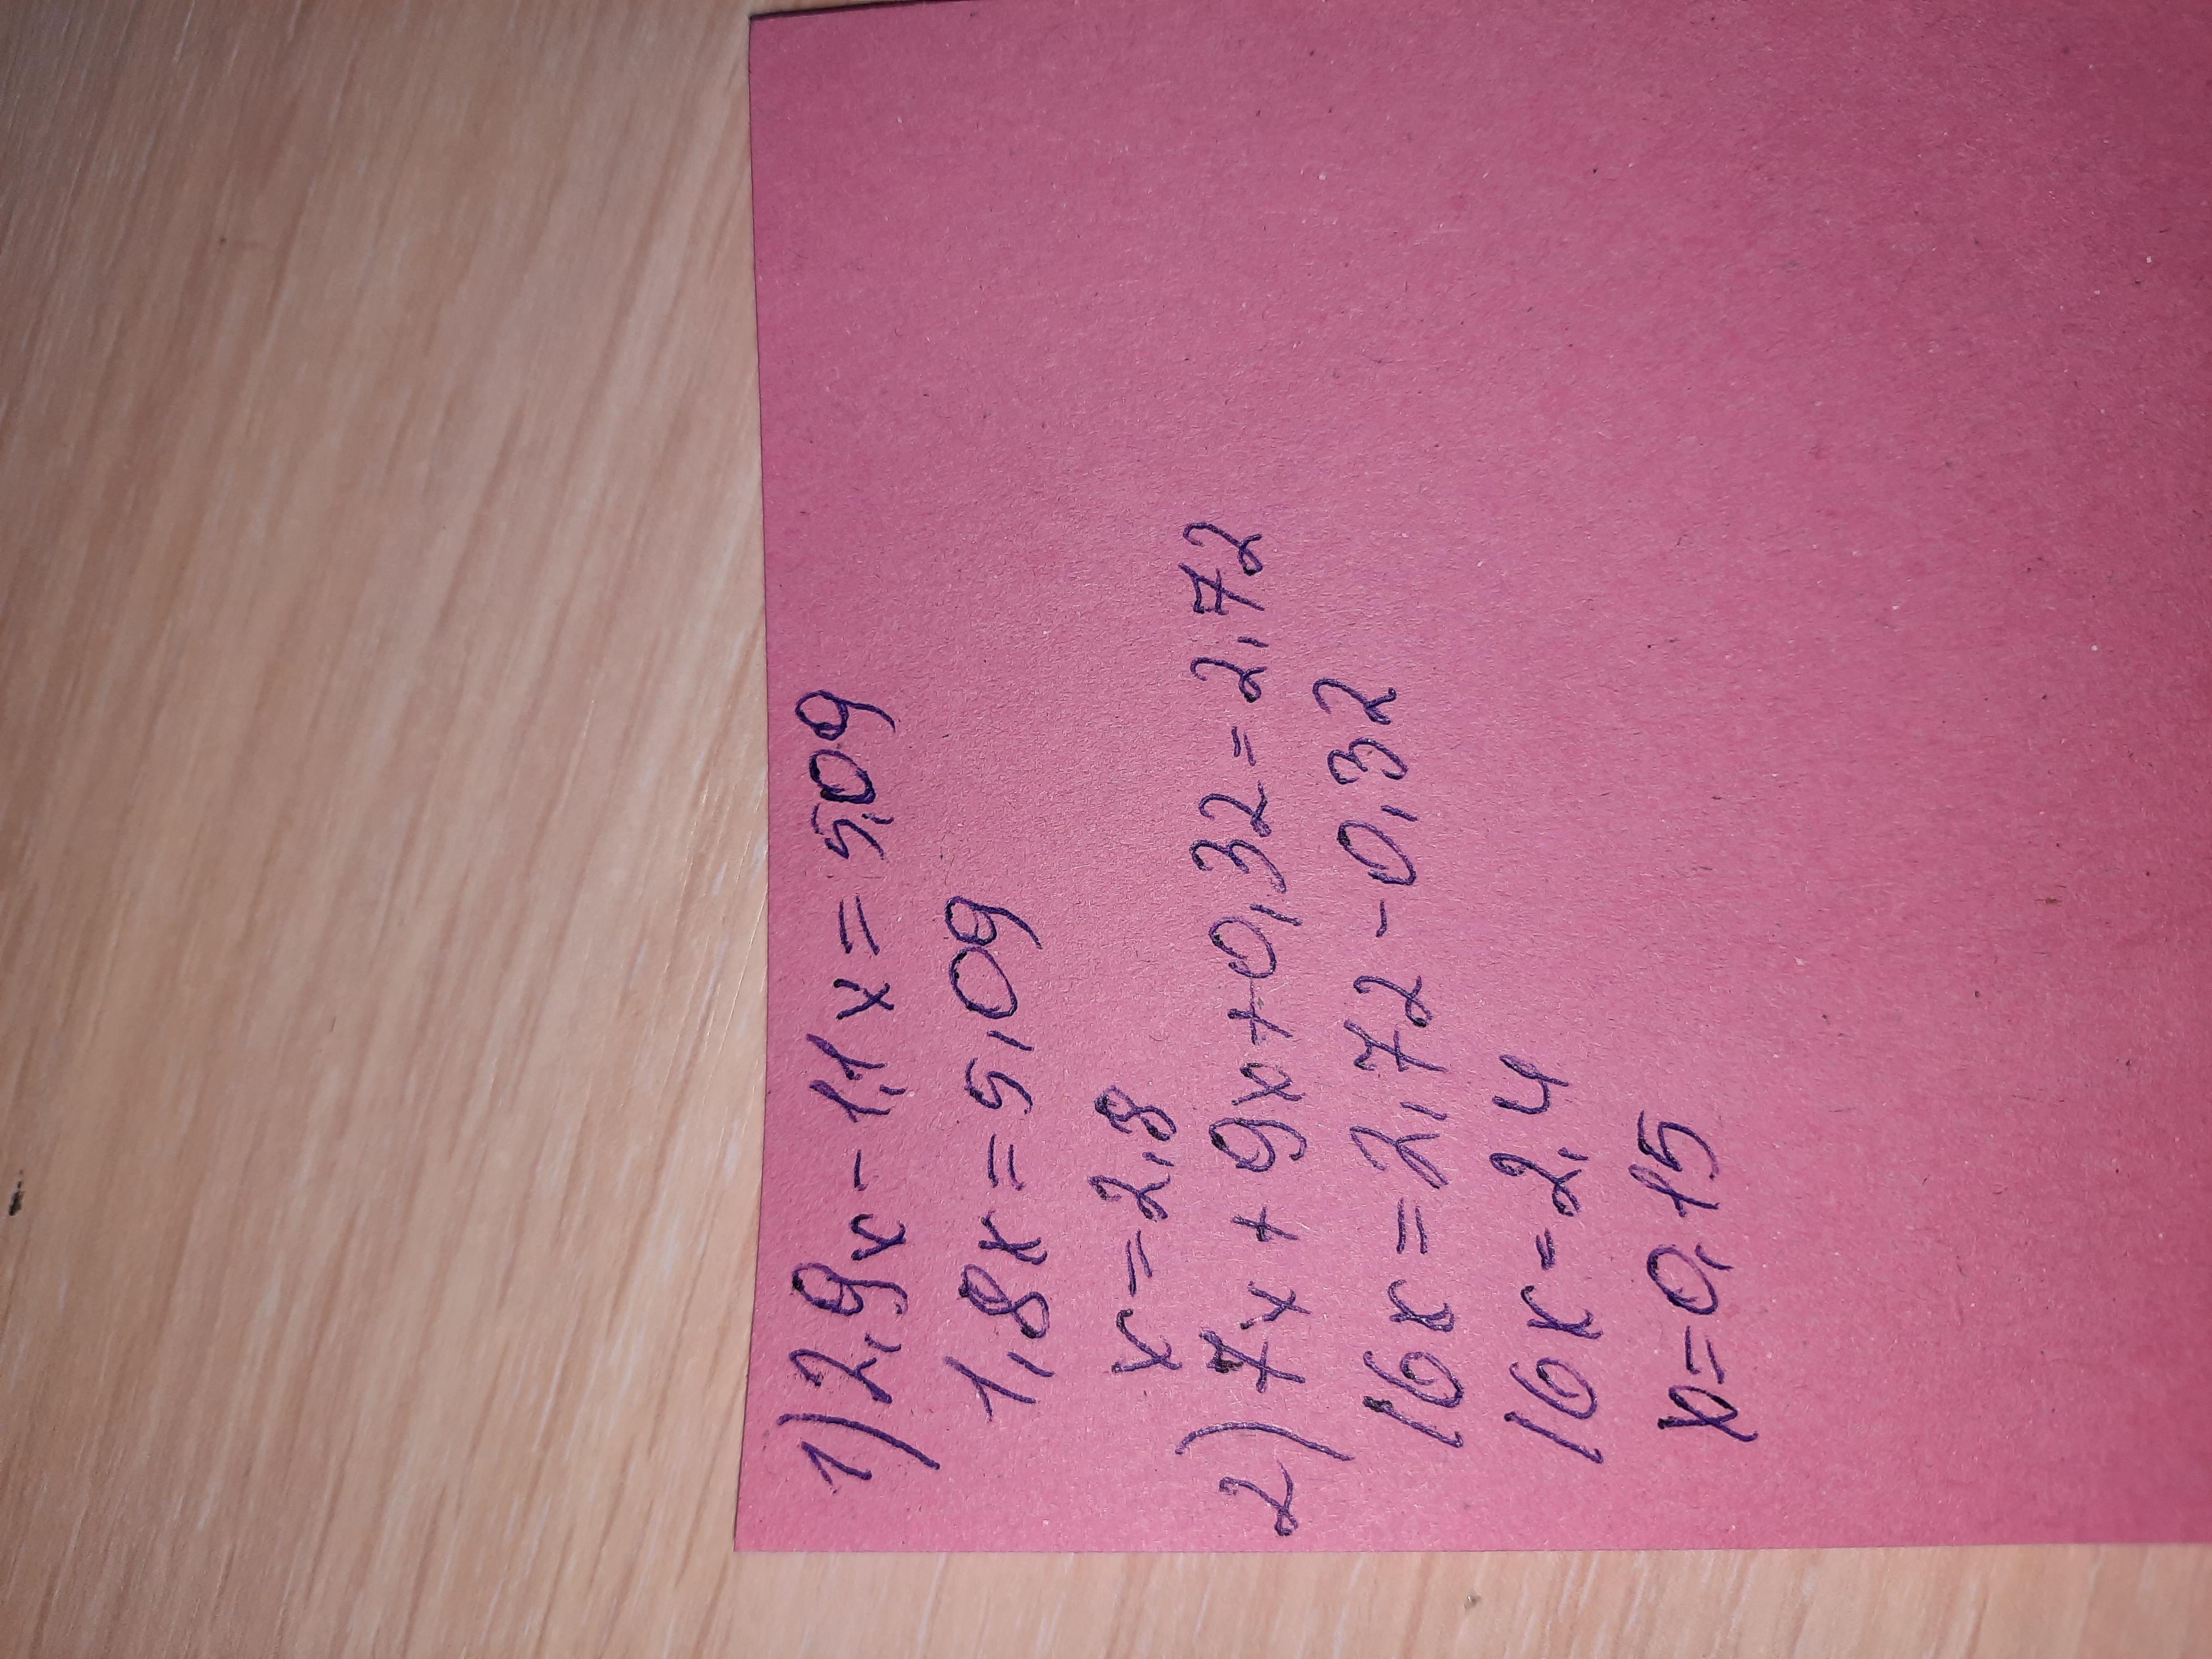 1) 2,9x - 1,1x = 5,09
1,8x = 5,09
x = 2,8
2) 7x + 9x + 0,32 = 2,72
16x = 2,72 - 0,32
16x = 2,4
x = 0,15